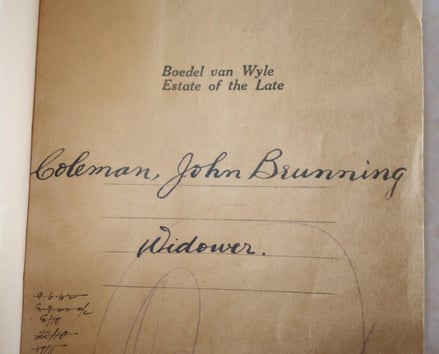 Boedel van Wyle
Estate of the Late
Coleman, John Brunning
Widower.
22/10
17/11